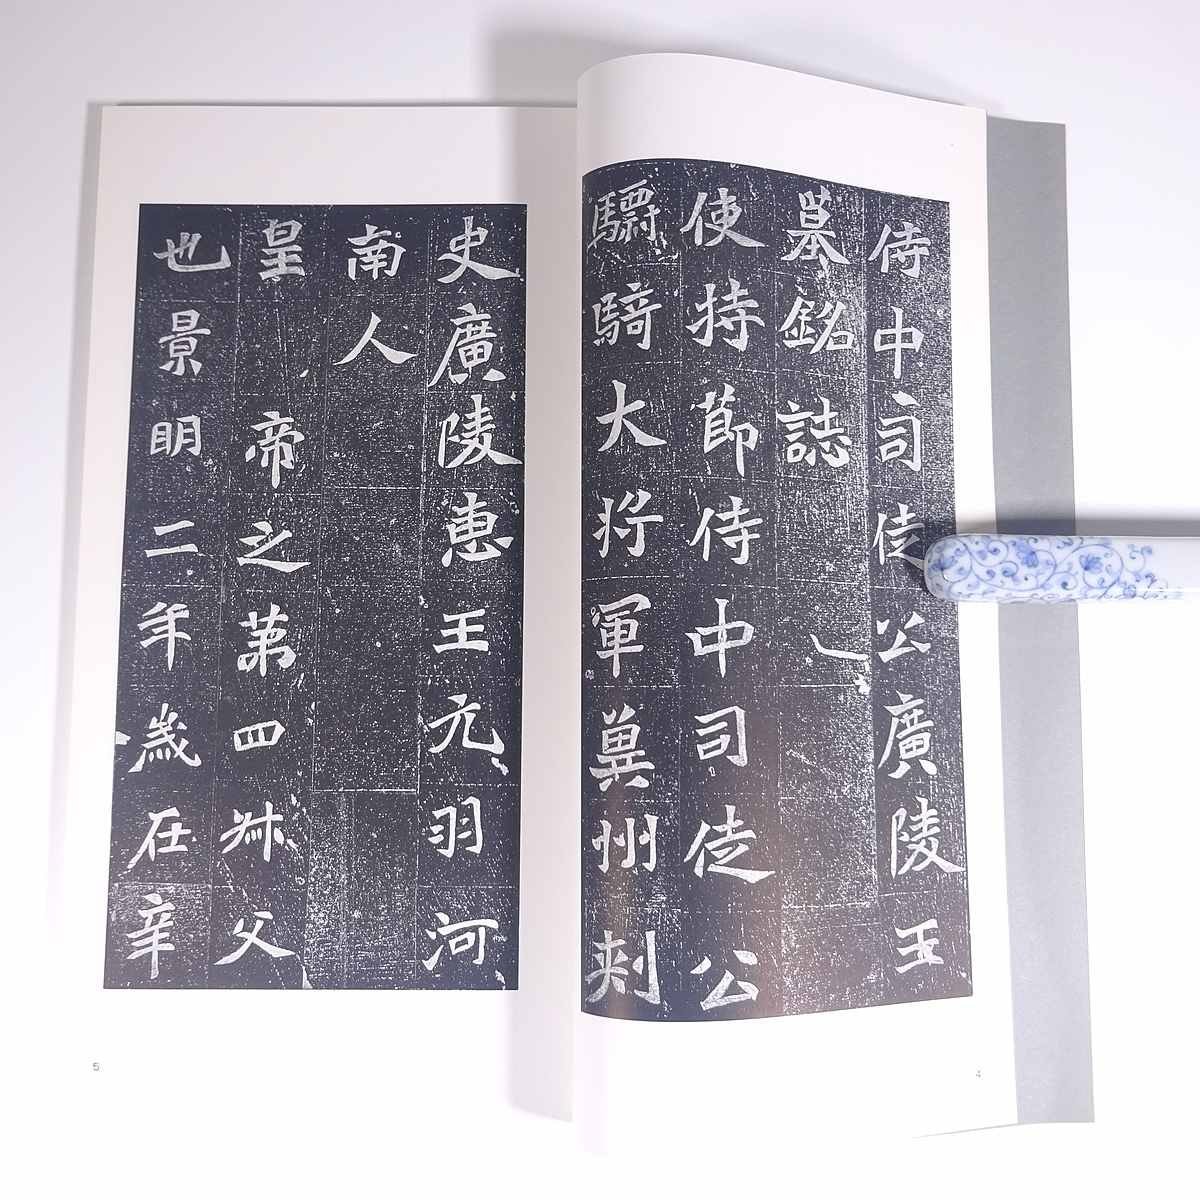 侍中司徒公廣陵王
墓銘誌
使持節侍中司徒公
驃騎大將軍冀州刺
史廣陵惠王元羽河
南人
皇帝之第四叔父
也景明二年歲在辛
5
4